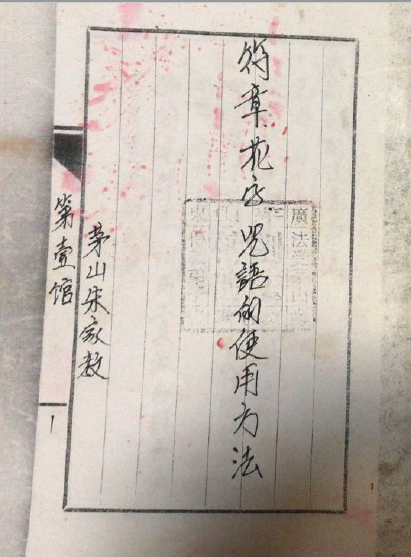 符章花字咒語的使用方法
茅山朱家教
第壹馆
1